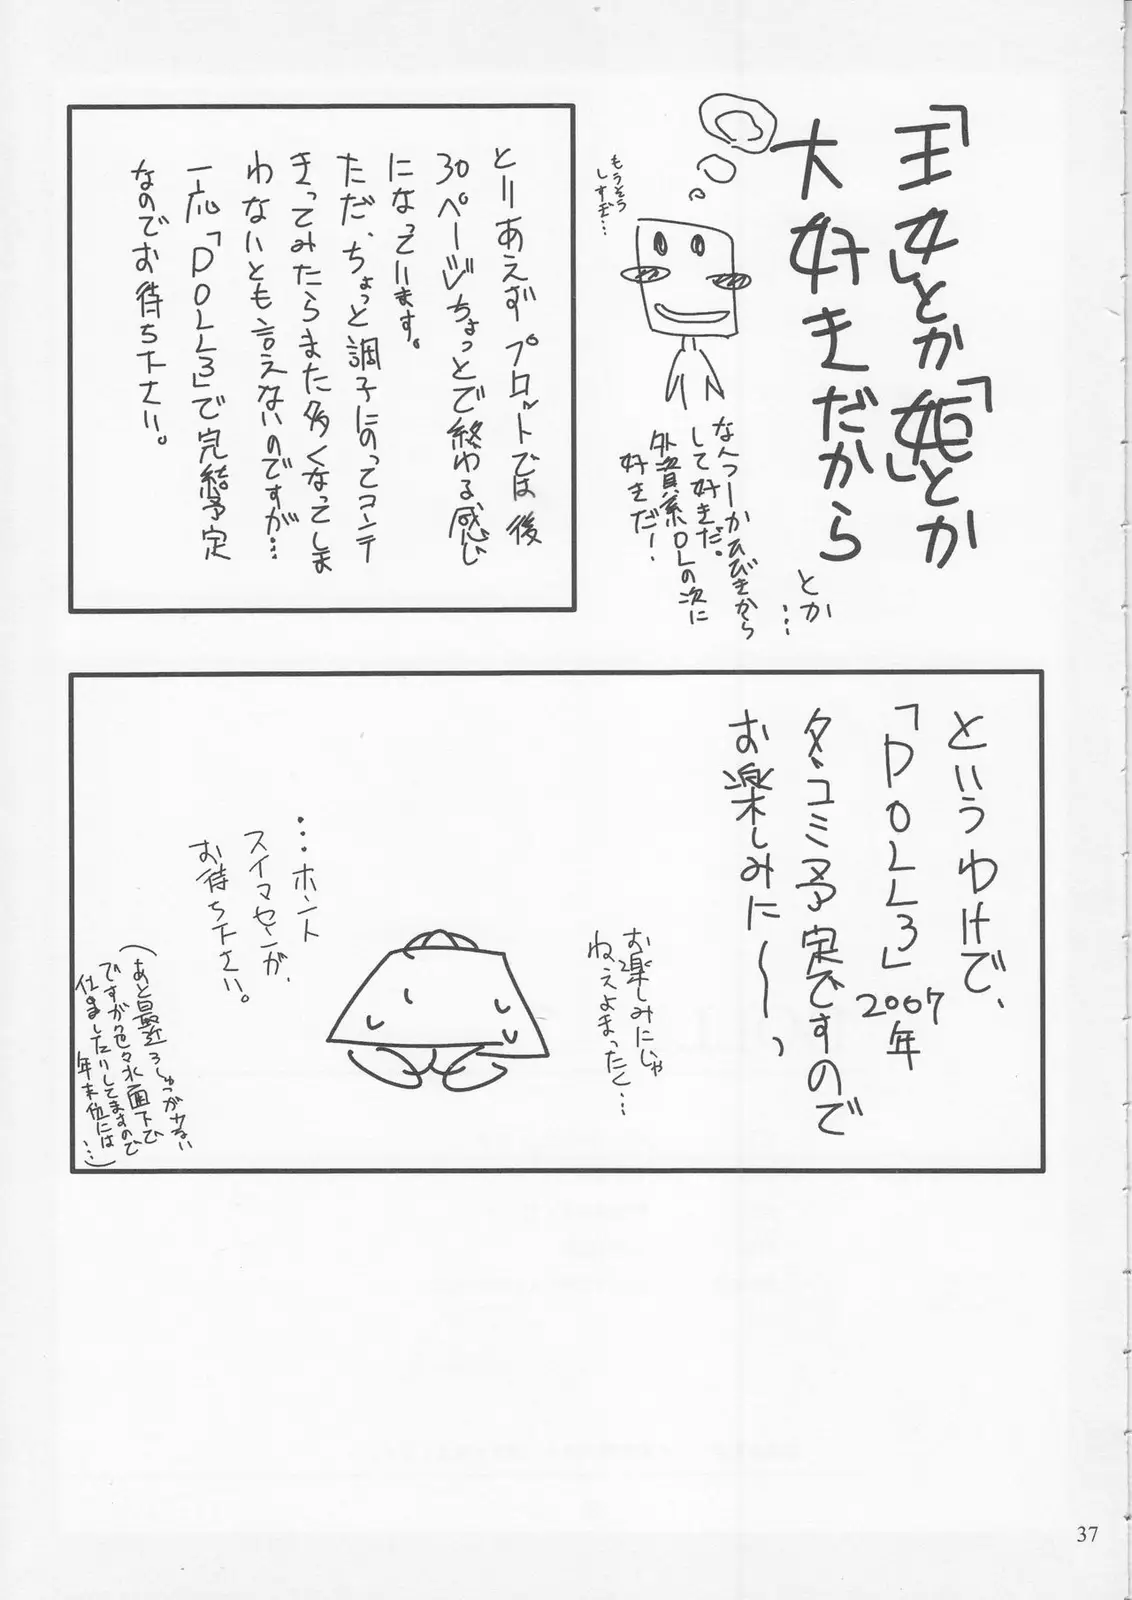 「王女」とか「姫」とか
大好きだから
とか…
なんつーかひびきから
して好きだ。
外資系OLの次に
好きだ！
もうそう
しすぎ…
とりあえずプロットでは後
30ページちょっとで終わる感じ
になっています。
ただ、ちょっと調子にのってコンテ
きってみたらまた多くなってしま
わないとも言えないのですが…
一応「DOLL3」で完結予定
なのでお待ち下さい。
というわけで、
「DOLL3」2007年
夏コミ予定ですので
お楽しみに〜っ
お楽しみにじゃ
ねえよまったく…
…ホント
スイマセンが、
お待ち下さい。
（あと最近ろしゅつがない
ですが色々水面下で
仕事したりしてますので
年末位には…）
37